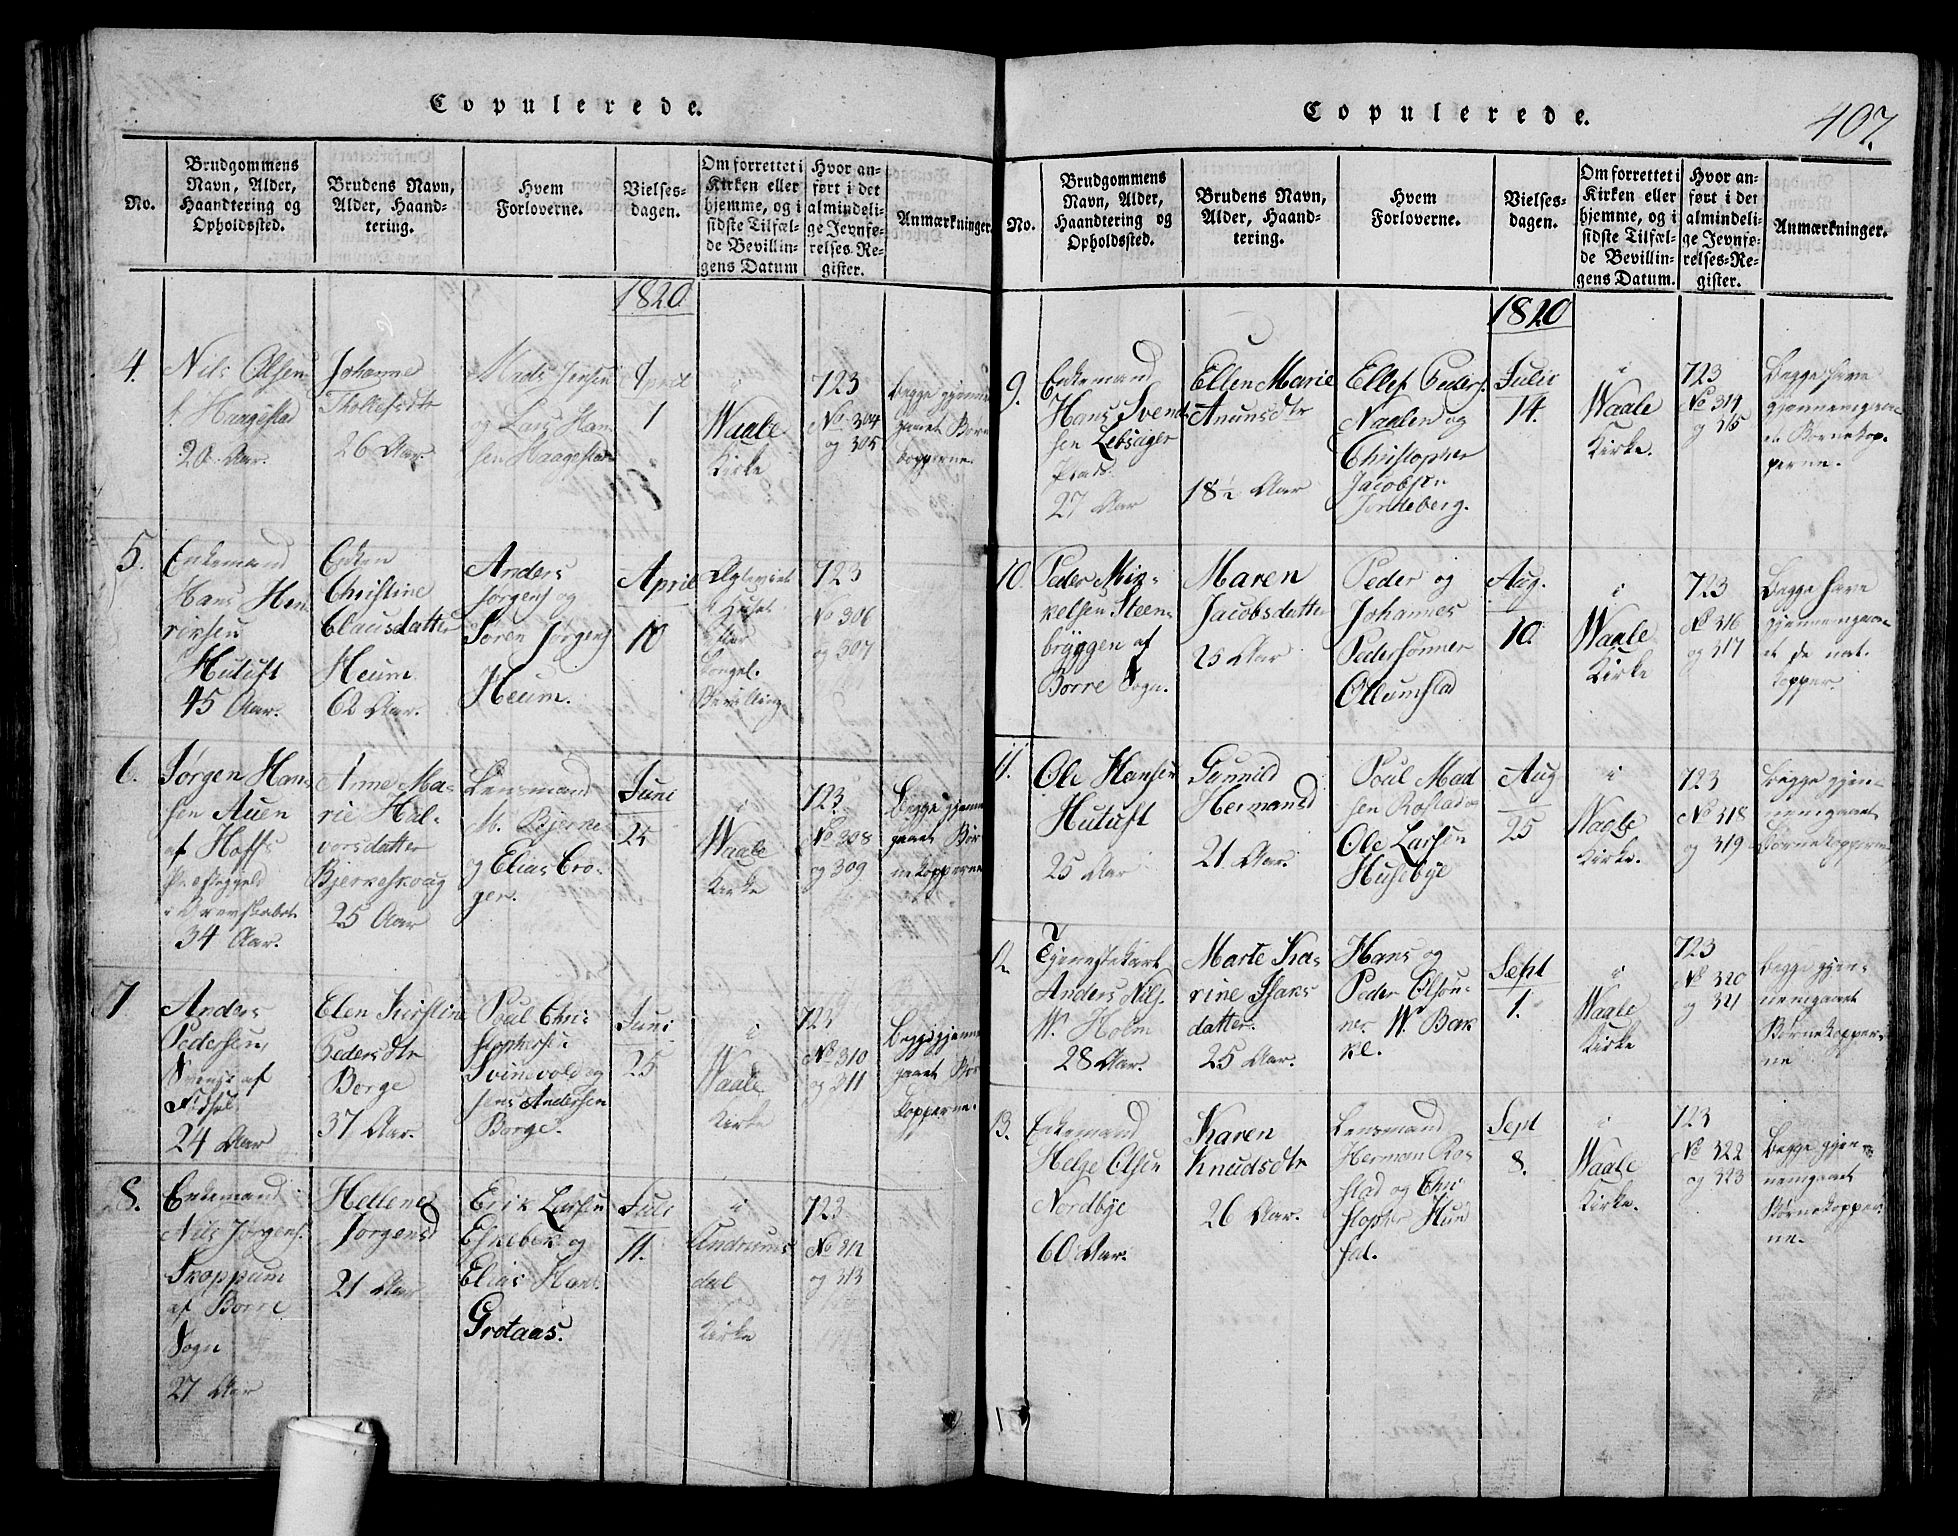 Copulerede.
No.
Brudgommens
Navn, Alder,
Haandtering og
Opholdssted.
Brudens Navn,
Alder, Haand-
tering.
Hvem
Forloverne.
Vielses-
dagen.
Om forrettet i
Kirken eller
hjemme, og i
sidste Tilfæl-
de Bevillin-
gens Datum
Hvor an-
ført i det
almindeli-
ge Jevnfø-
relses-Re-
gister.
Anmærkninger.
1820
4.
Nils Olsen
Haagestad
20 Aar.
Johanne
26 Aar.
Mads Jensen
og Lars Han
sen Haagestad
April
7
i
Waale
Kirke
723
No 304
og 305
Begge gjennem
gaaet Børne
kopperne.
5.
Enkemand
Hans Hen
riksen
Hutuft
45 Aar.
Enken
Christine
Clausdatter
Heum
62 Aar.
Anders
Jørgens og
Søren Jørgens
Heum.
April
10
Huset
efter
Kongel.
Bevilling
723
No 306
og 307
6.
Jørgen Han
sen Auen
af Hoffs
Præstegjeld
34 Aar.
Anne Ma-
rie Hal-
vorsdatter
Bjerkeskoug
25 Aar
Lensmand
M. Bjerke
og Elias Cro-
ger.
Juni
25
i
Waale
Kirke
723.
No 308
og 309
Begge gjennem
gaaet Bør
nekopperne
7
Anders
Pedersen
af
24 Aar
Elen Kirstine
Pedersdtr
Borge
37 Aar.
Poul Chri
stophersen
Svinevold og
Jens Andersen
Borge.
Juni
25
i
Waale
Kirke
723
No 310
og 311
Begge gjennem
gaaet Bør
kopperne.
8.
Enkemand
Nils Jørgens.
Skoppum
af Borre
Sogn
27 Aar
Hellene
Jorgensd
21 Aar
Erik Larsen
Eskebek og
Elias Hans
Grotaas.
Juli
11.
i
Undrums
dal
Kirke
723
No 312
og 313
Copulerede.
407.
No.
Brudgommens
Navn, Alder,
Haandtering og
Opholdssted.
Brudens Navn,
Alder, Haand-
tering.
Hvem
Forloverne.
Vielses-
dagen.
Om forrettet i
Kirken eller
hjemme, og i
sidste Tilfæl-
de Bevillin-
gens Datum.
Hvor an-
ført i det
almindeli-
ge Jevnfø-
relses-Re-
gister.
Anmærkninger.
1820
9.
Enkemand
Hans Svend
sen Lebsiger
27 Aar
Ellen Marie
Anunsdtr
18½ Aar
Ellef Peders.
Naalen og
Christopher
Jacobsen
Jonsleberg.
Julii
14.
i
Waale
Kirke.
723
No 314
og 315
Begge have
gjennemgaa-
et Børnekop-
perne.
10.
Peder Mik-
kelsen Steen-
bryggen af
Borre Sogn.
Maren
Jacobsdatter
25 Aar
Peder og
Johannes
Pedersønner
Ollumstad
Aug.
10.
i
Waale
Kirke
723
No 316
og 317
Begge have
gjennemgaa-
et de nat.
kopper.
11.
Ole Hansen
Hutuft
25 Aar
Gunnild
Hermansd
21 Aar.
Poul Mad
sen Rostad og
Ole Larsen
Husebye
Aug
25
i
Waale
Kirke.
723
No 318
og 319
Begge gjen-
nemgaaet
Børnekopperne
12
Tjenestekarl
Anders Nils.
W. Holm
28 Aar.
Marte Ka-
rine Isaks
datter.
25 Aar.
Hans og
Peder Olsøn-
ner W. Bak
ke.
Sept
1.
i
Waale
Kirke
723
No 320
og 321
Begge gjen-
nemgaaet
Børnekopper-
ne
13.
Enkemand
Helge Olsen
Nordbye
60 Aar.
Karen
Knudsdtr
26 Aar.
Lensmand
Herman Ro-
stad og Chri
stopher Hund
sal.
Sept
8.
i
Waale
Kirke.
723
No 322
og 323
Begge gjen-
nemgaaet
Børnekopper
ne.